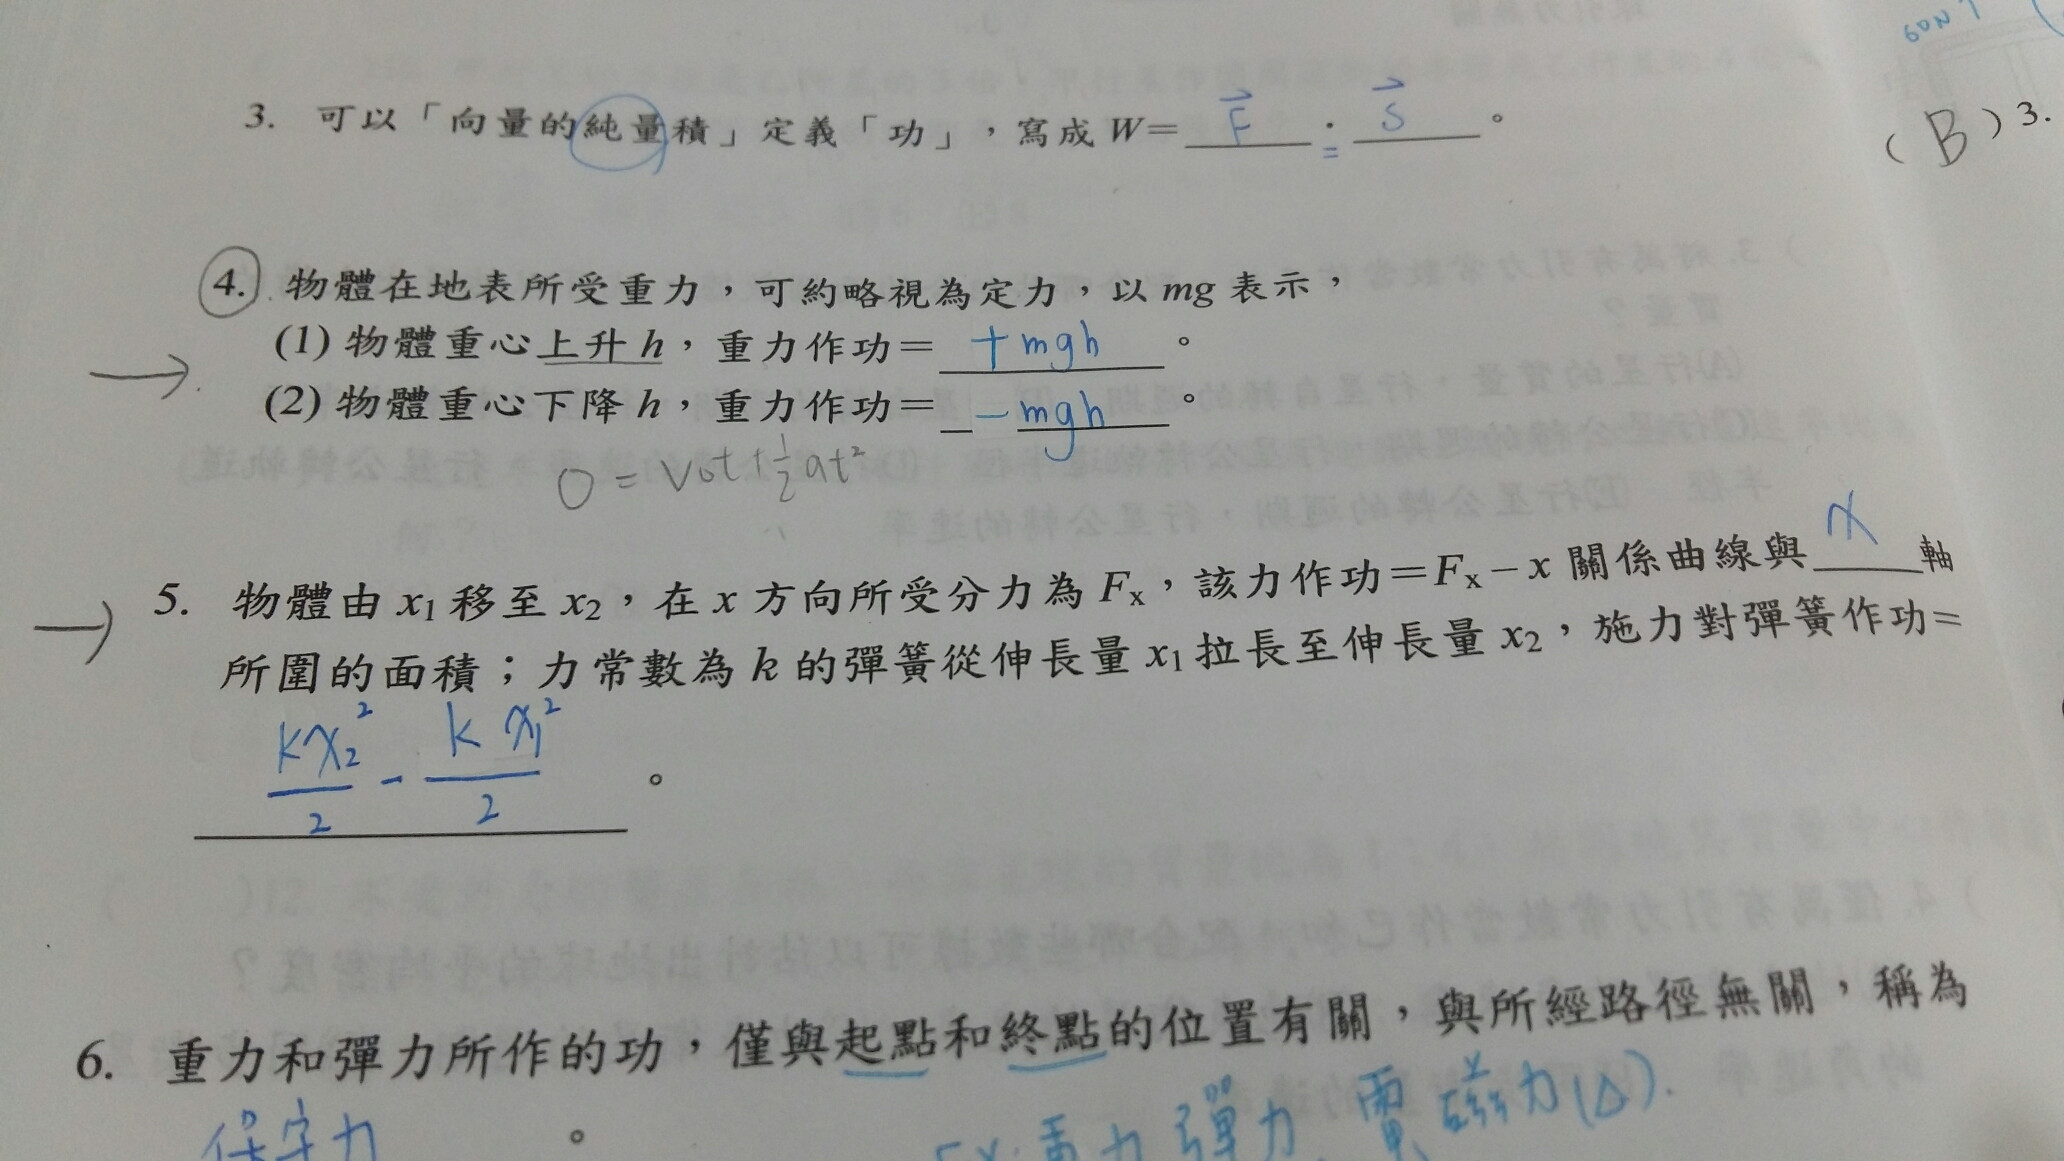 60N
3. 可以「向量的純量積」定義「功」，寫成 W= F⃗ · S⃗ 。
(B) 3.
4. 物體在地表所受重力，可約略視為定力，以 mg 表示，
(1) 物體重心上升 h，重力作功= +mgh 。
(2) 物體重心下降 h，重力作功= -mgh 。
0 = V₀t+½at²
5. 物體由 x₁ 移至 x₂，在 x 方向所受分力為 Fₓ，該力作功=Fₓ－x 關係曲線與 x 軸
所圍的面積；力常數為 k 的彈簧從伸長量 x₁ 拉長至伸長量 x₂，施力對彈簧作功=
kx₂²/2 - kx₁²/2 。
6. 重力和彈力所作的功，僅與起點和終點的位置有關，與所經路徑無關，稱為
保守力 。
Ex: 重力 彈力、電磁力(△).